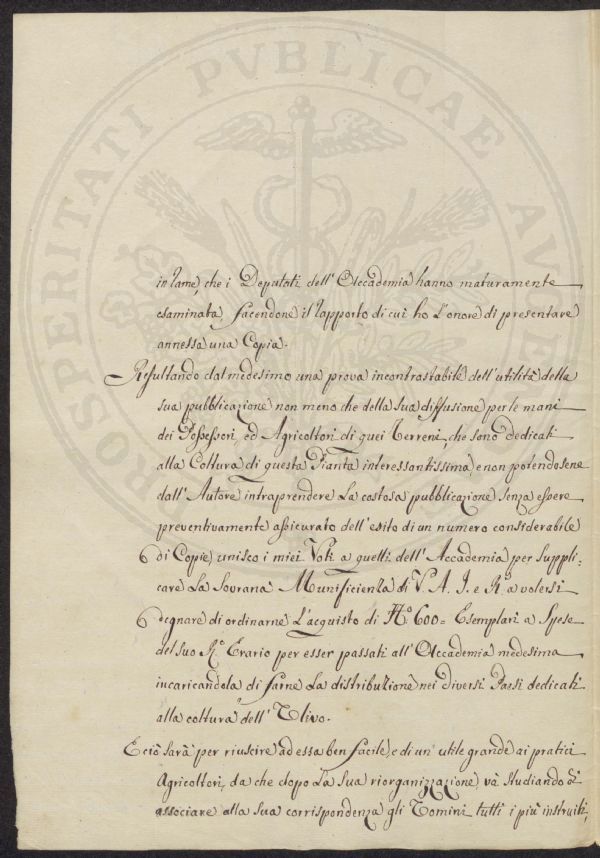 PROSPERITATI PVBLICAE AVGE
in Rame, che i Deputati dell' Accademia hanno maturamente
esaminata, facendone il rapporto di cui ho l'onore di presentare
annessa una Copia.
Resultando dal medesimo una prova incontrastabile dell'utilità della
sua pubblicazione non meno che della sua diffusione per le mani
dei Possessori, ed Agricoltori di quei Terreni, che sono dedicati
alla Coltura di questa Pianta interessantissima, e non potendosene
dall'Autore intraprendere la costosa pubblicazione senza essere
preventivamente assicurato dell'esito di un numero considerabile
di Copie, unisco i miei Voti a quelli dell'Accademia per suppli-
care la Sovrana Munificienza di V. A. I. e R. a volersi
degnare di ordinarne l'acquisto di N.º 600 = Esemplari a Spese
del suo R.º Erario per esser passati all'Accademia medesima
incaricandola di farne la distribuzione nei diversi Paesi dedicati
alla coltura dell'Olivo.
E ciò sarà per riuscire ad essa ben facile, e di un' utile grande ai pratici
Agricoltori, da che dopo la sua riorganizzazione và studiando di
associare alla sua corrispondenza gli Uomini tutti i più instruiti,